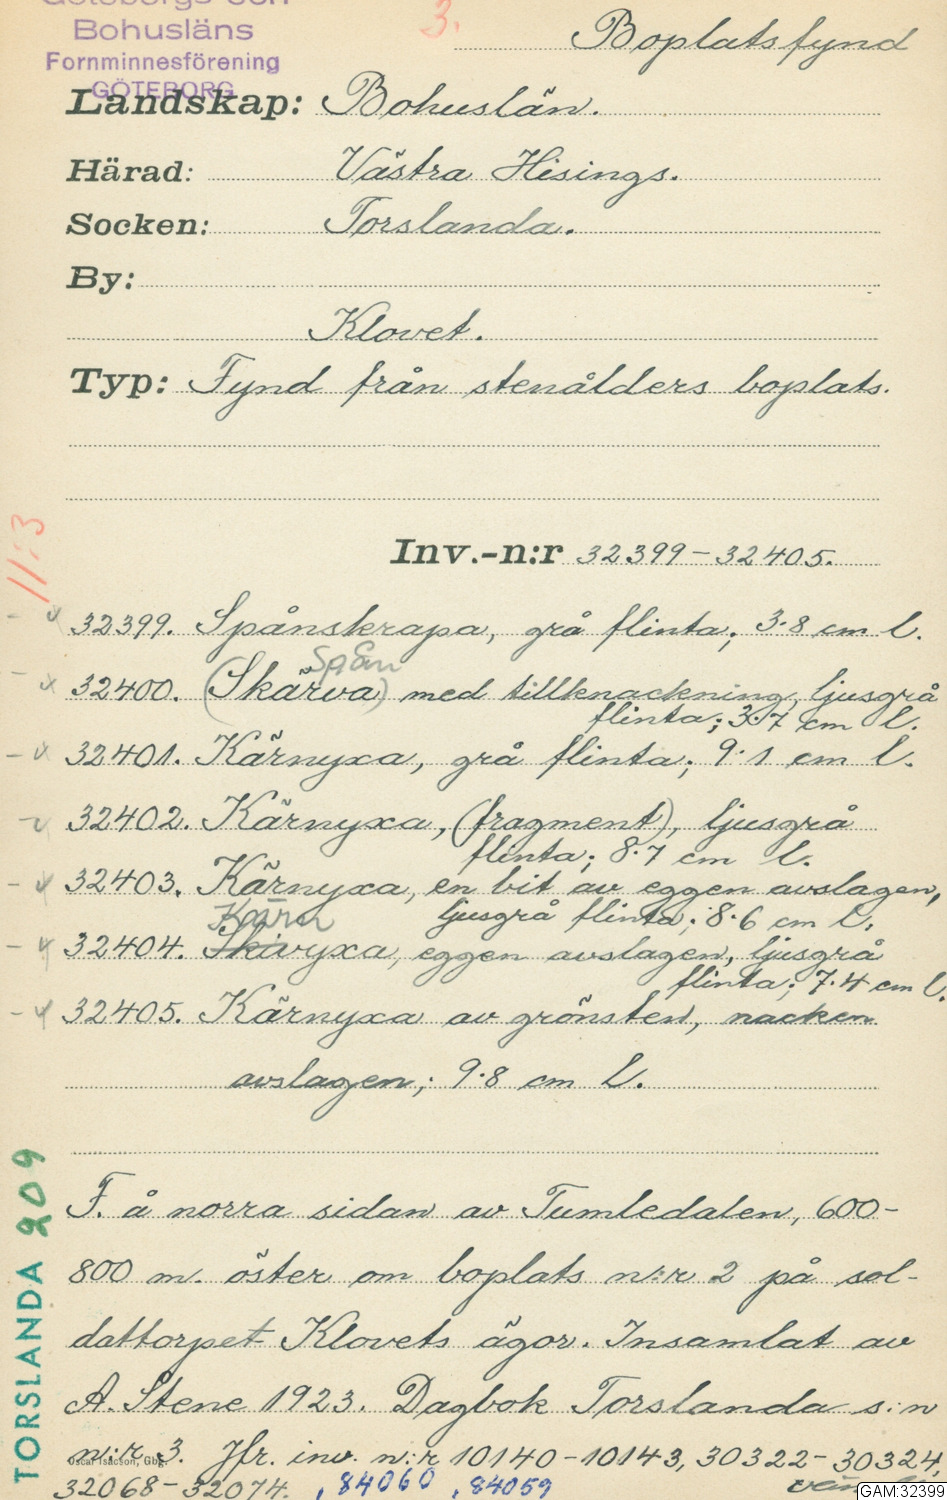 Göteborgs och
Bohusläns
Fornminnesförening
GÖTEBORG
3.
Boplatsfynd
Landskap: Bohuslän.
Härad: Västra Hisings.
Socken: Torslanda.
By:
Klovet.
Typ: Fynd från stenålders boplats.
11:3
Inv.-n:r 32399-32405.
32399. Spånskrapa, grå flinta; 3.8 cm l.
Spån
32400. (Skärva) med tillknackning, ljusgrå
flinta; 3.7 cm l.
32401. Kärnyxa, grå flinta; 9.1 cm l.
32402. Kärnyxa, (fragment), ljusgrå
flinta; 8.7 cm l.
32403. Kärnyxa, en bit av eggen avslagen,
ljusgrå flinta; 8.6 cm l.
Kärn
32404. Skivyxa, eggen avslagen, ljusgrå
flinta; 7.4 cm l.
32405. Kärnyxa av grönsten, nacken
avslagen; 9.8 cm l.
F. å norra sidan av Tumledalen, 600-
800 m. öster om boplats n:r 2 på sol-
dattorpet Klovets ägor. Insamlat av
A. Stene 1923. Dagbok Torslanda s:n
n:r 3. Jfr. inv. n:r 10140-10143, 30322-30324,
Oscar Isacson, Gbg.
32068-32074. , 84060 , 84059
TORSLANDA 209
GAM:32399